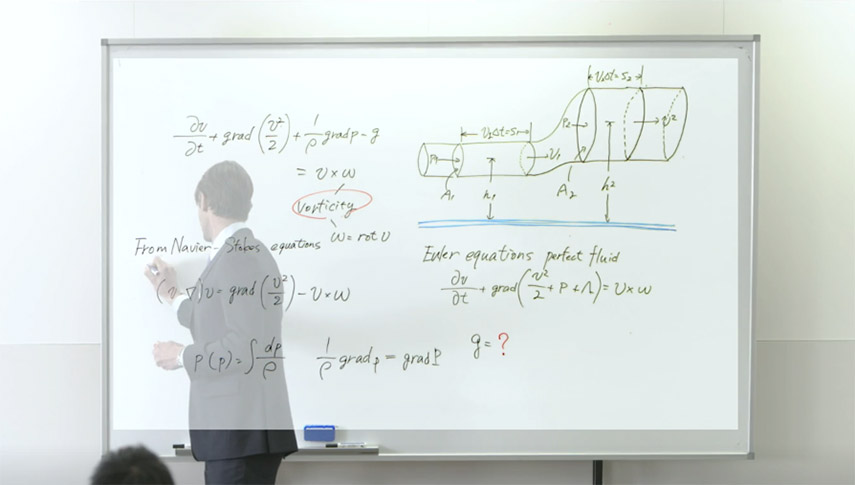 ∂v/∂t + grad (v²/2) + 1/ρ grad p - g
= v × ω
Vorticity
ω = rot v
From Navier-Stokes equations
(v-∇)v = grad (v²/2) - v × ω
P(p) = ∫ dp/ρ
1/ρ grad p = grad P
V₁Δt = S₂
V₂Δt = S₁
P₁
V₁
A₁
h₁
P₂
v²
A₂
h²
Euler equations perfect fluid
∂v/∂t + grad (v²/2 + P + Λ) = v × ω
g = ?